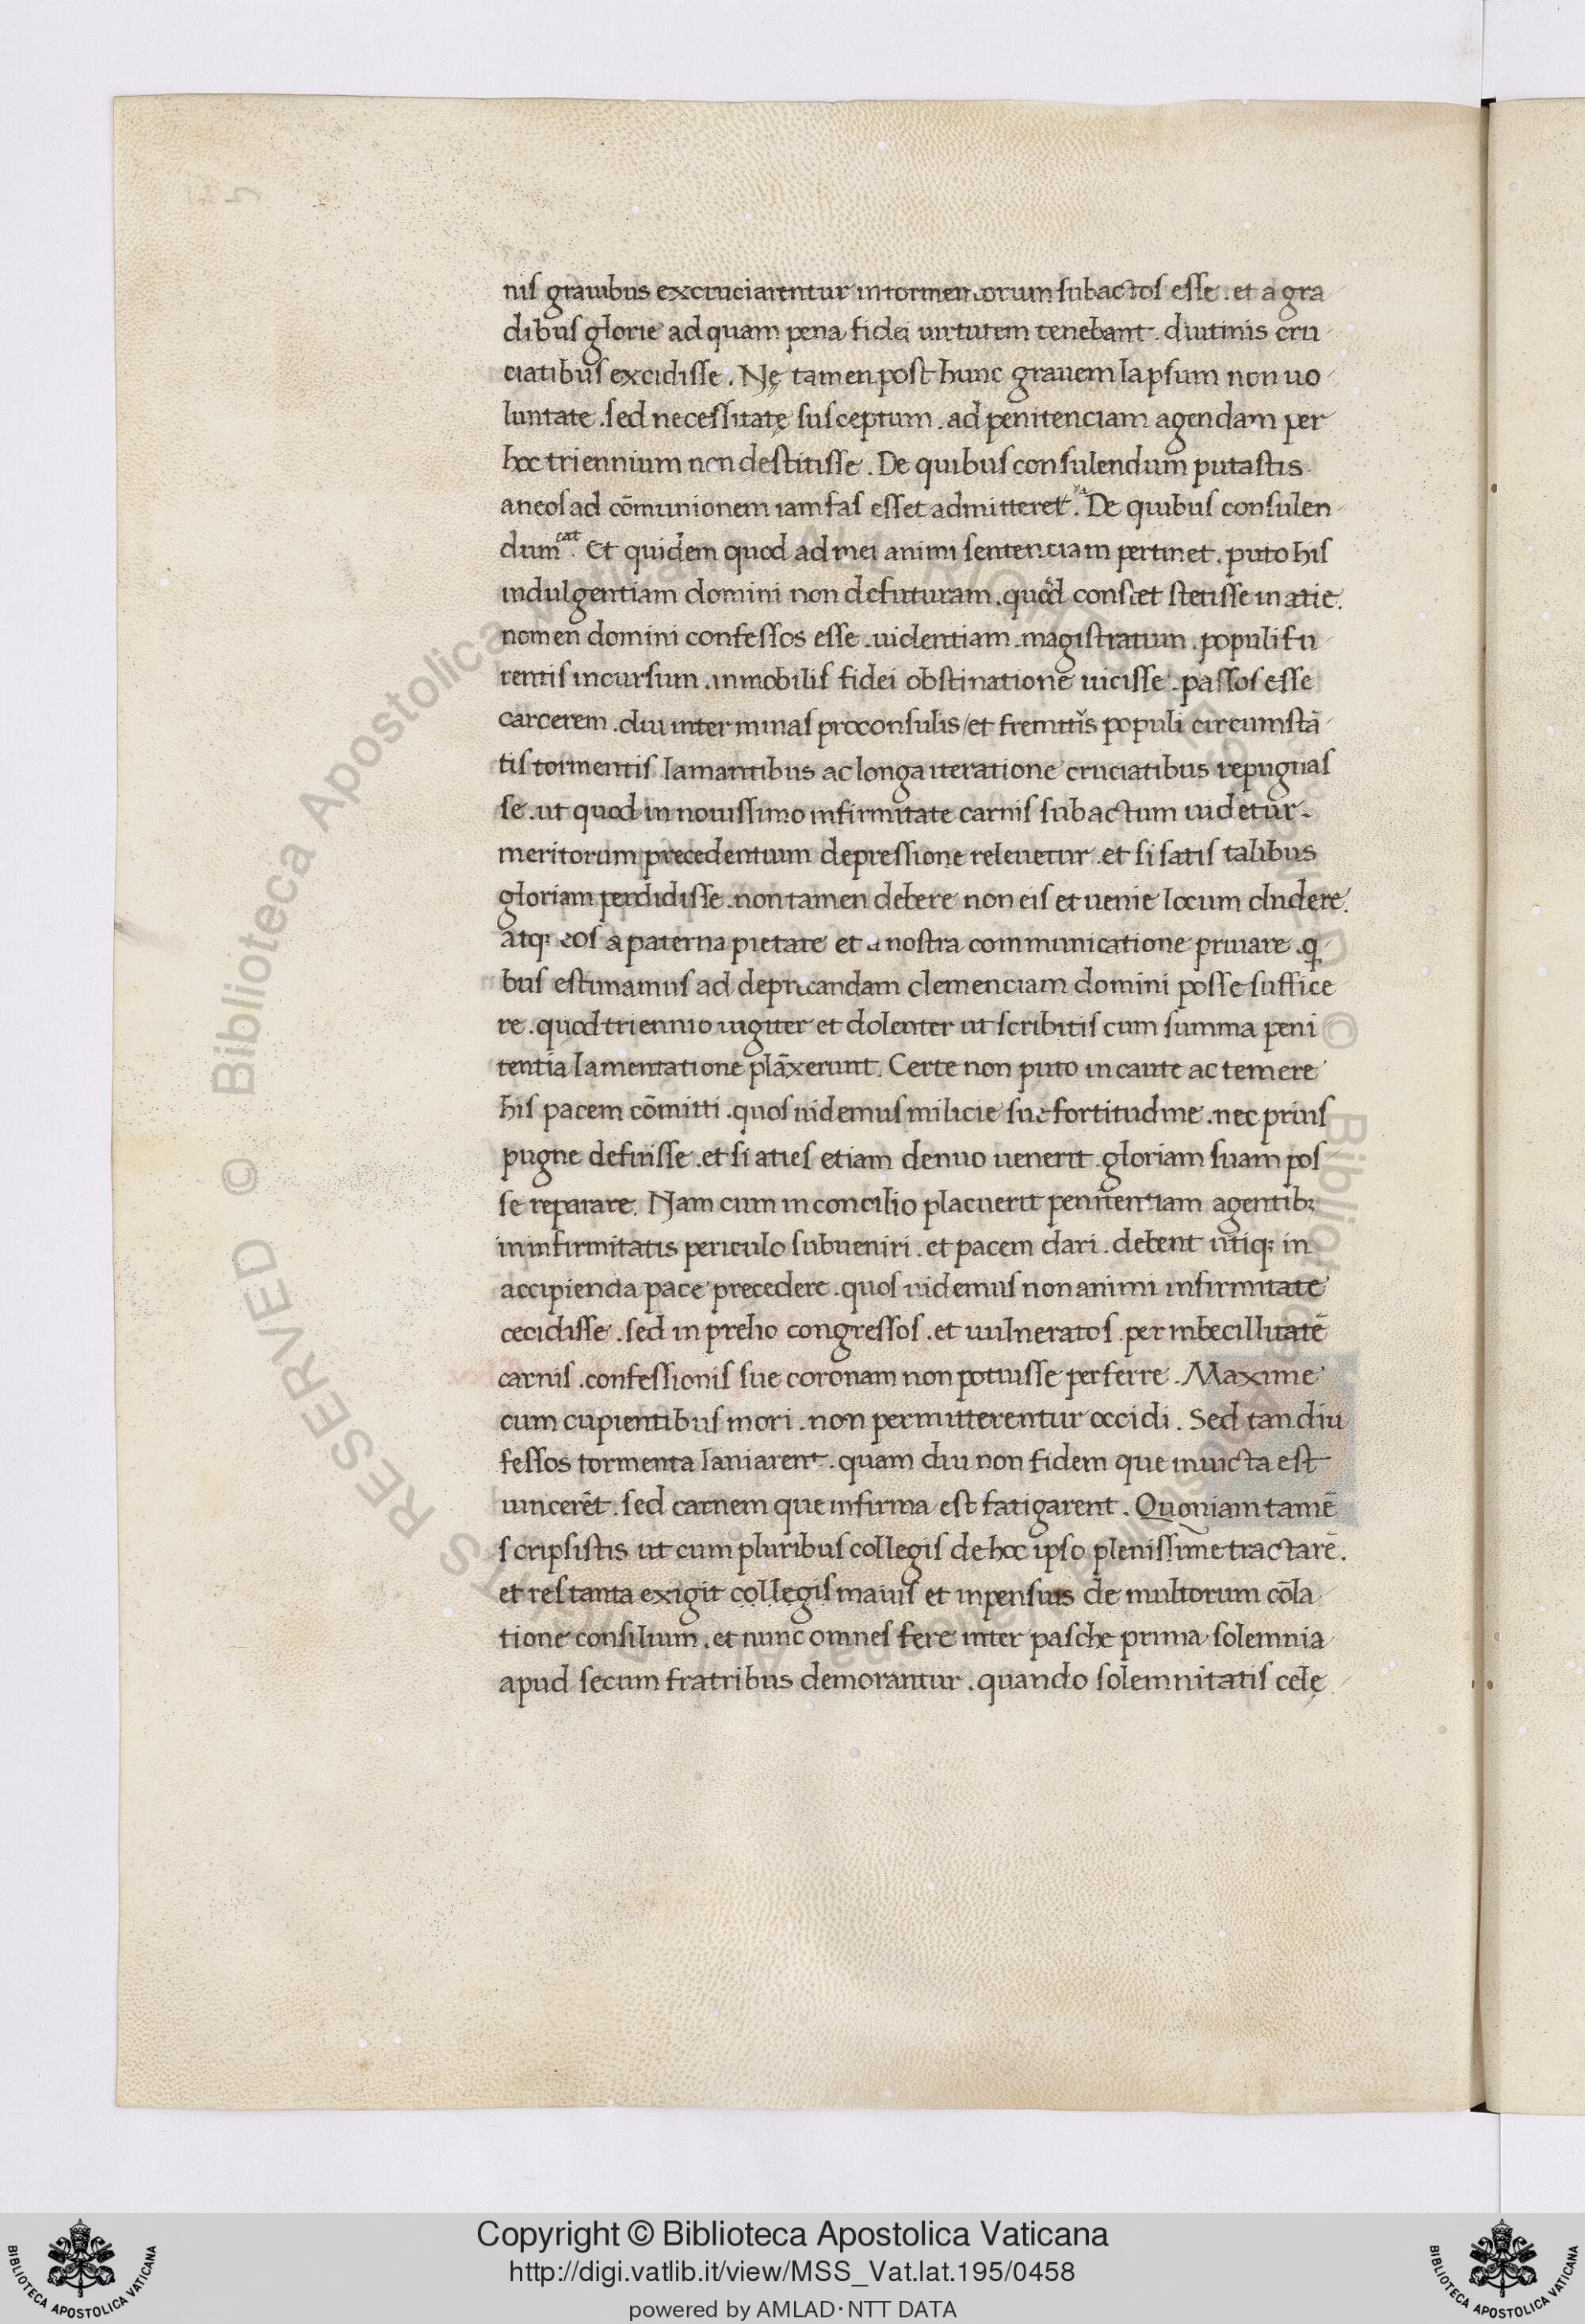 nis grauibus excruciarentur intormentorum subactos esse . et a gra
dibus glorie ad quam pena fidei uirtutem tenebant . diutinis cru
ciatibus excidisse . Nę tamen post hunc grauem lapsum non uo
luntate . sed necessitatę susceptum . ad penitenciam agendam per
hoc triennium non destitisse . De quibus consulendum putastis
aneos ad cōmunionem iam fas esset admitteret . De quibus consulen
dum . Et quidem quod ad mei animi sentenciam pertinet . puto his
indulgentiam domini non defuturam . quod constet stetisse in atie .
nomen domini confessos esse . uidentiam . magistratum . populi fu
rentis incursum . inmobilis fidei obstinatione uicisse . passos esse
carcerem . diu inter minas proconsulis / et fremitus populi circumstā
tis tormentis lamantibus ac longa iteratione cruciatibus repugnas
se . ut quod in nouissimo infirmitate carnis subactum uidetur .
meritorum precedentium depressione releuetur . et si satis talibus
gloriam perdidisse . non tamen debere non eis et uenie locum cludere .
atq; eos a paterna pietate et a nostra communicatione priuare . q
bus estimamus ad depricandam clemenciam domini posse suffice
re . quod triennio iugiter et dolenter ut scribitis cum summa peni
tentia lamentatione plāxerunt . Certe non puto incaute ac temere
his pacem cōmitti . quos uidemus milicie sue fortitudine . nec prius
pugne defuisse . et si aties etiam denuo uenerit . gloriam suam pos
se reparare . Nam cum in concilio placuerit penitentiam agentib;
in infirmitatis periculo subueniri . et pacem dari . debent utiq; in
accipienda pace precedere . quos uidemus non animi infirmitate
cecidisse . sed in prelio congressos . et uulneratos . per inbecillitatē
carnis . confessionis sue coronam non potuisse perferre . Maxime
cum cupientibus mori . non permitterentur occidi . Sed tan diu
fessos tormenta laniarent . quam diu non fidem que inuicta est
uincerēt . sed carnem que infirma est fatigarent . Quoniam tamē
scripsistis ut cum pluribus collegis de hoc ipso plenissime tractarē .
et res tanta exigit collegis maius et inpensius de multorum cōla
tione consilium . et nunc omnes fere inter pasche prima solemnia
apud secum fratribus demorantur . quando solemnitatis celę
Copyright © Biblioteca Apostolica Vaticana
http://digi.vatlib.it/view/MSS_Vat.lat.195/0458
powered by AMLAD · NTT DATA